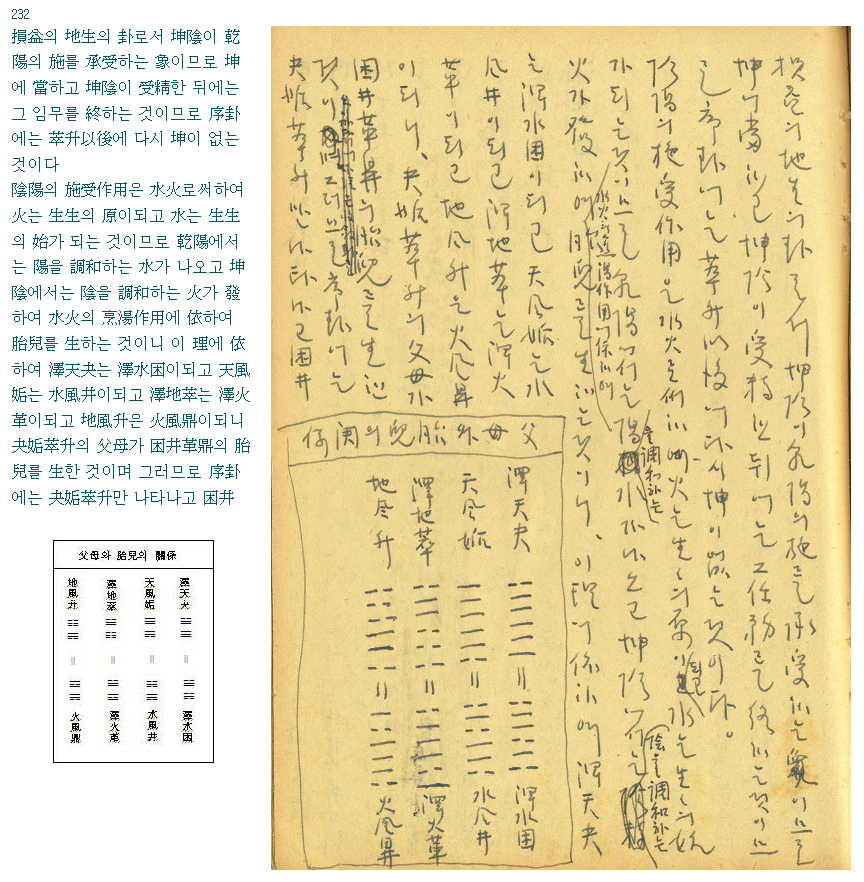 232
損益의 地生의 卦로서 坤陰이 乾
陽의 施를 承受하는 象이므로 坤
에 當하고 坤陰이 受精한 뒤에는
그 임무를 終하는 것이므로 序卦
에는 萃升以後에 다시 坤이 없는
것이다
陰陽의 施受作用은 水火로써하여
火는 生生의 原이되고 水는 生生
의 始가 되는 것이므로 乾陽에서
는 陽을 調和하는 水가 나오고 坤
陰에서는 陰을 調和하는 火가 發
하여 水火의 烹湯作用에 依하여
胎兒를 生하는 것이니 이 理에 依
하여 澤天夬는 澤水困이되고 天風
姤는 水風井이되고 澤地萃는 澤火
革이되고 地風升은 火風鼎이되니
夬姤萃升의 父母가 困井革鼎의 胎
兒를 生한 것이며 그러므로 序卦
에는 夬姤萃升만 나타나고 困井
父母와 胎兒의 關係
澤天夬 = 澤水困
天風姤 = 水風井
澤地萃 = 澤火革
地風升 = 火風鼎
損益의 地生의 卦로서 坤陰이 乾陽의 施를 承受하는 象이므로
坤에 當하고 坤陰이 受精한 뒤에는 그 任務를 終하는 것이므
로 序卦에는 萃升以後에 다시 坤이 없는 것이다。
陰陽의 施受作用은 水火로써하여 火는 生生의 原이되고 水는 生生의 始
가되는 것이므로 乾陽에서는 陽을 調和하는 水가 나오고 坤陰에서는 陰을 調和하는
火가 發하여 水火의 烹湯作用에 依하여 胎兒를 生하는 것이니、이 理에 依하여 澤天夬
는 澤水困이되고 天風姤는 水
風井이되고 澤地萃는 澤火
革이되고 地風升은 火風鼎
이되니、夬姤萃升의 父母가
困井革鼎의 胎兒를 生한
것이며 그러므로 序卦에는
夬姤萃升만 나타나고 困井
父母와 胎兒의 関係
澤天夬 = 澤水困
天風姤 = 水風井
澤地萃 = 澤火革
地風升 = 火風鼎